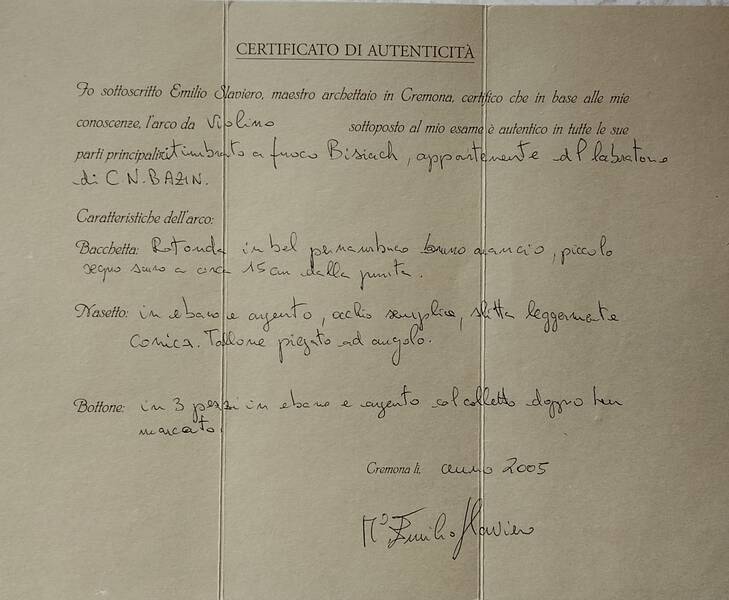 CERTIFICATO DI AUTENTICITÀ
Io sottoscritto Emilio Slaviero, maestro archettaio in Cremona, certifico che in base alle mie
conoscenze, l'arco da Violino sottoposto al mio esame è autentico in tutte le sue
parti principali: timbrato a fuoco Bisiach, appartenente al laboratorio
di C N. BAZIN.
Caratteristiche dell'arco:
Bacchetta: Rotonda in bel pernambuco bruno arancio, piccolo
segno scuro a circa 15 cm dalla punta.
Nasetto: in ebano e argento, occhio semplice, slitta leggermente
conica. Tallone piegato ad angolo.
Bottone: in 3 pezzi in ebano e argento col colletto doppio ben
marcato.
Cremona lì, anno 2005
M° Emilio Slaviero